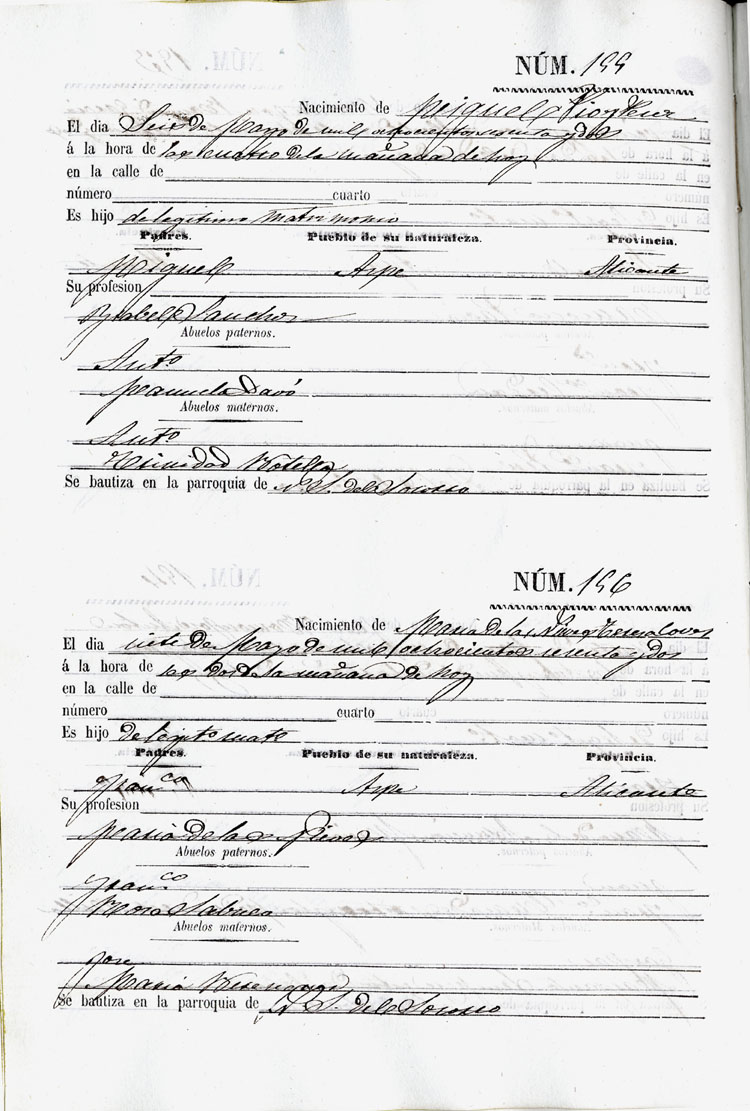 NÚM. 155
Nacimiento de Miguel
El dia Seis de Mayo de mil ochocientos sesenta y dos
á la hora de las cuatro de la mañana de hoy
en la calle de
número cuarto
Es hijo de legitimo matrimonio
Padres. Pueblo de su naturaleza. Provincia.
Miguel Aspe Alicante
Su profesion
Ysabel Sanchez
Abuelos paternos.
Anto.
Manuela Davó
Abuelos maternos.
Anto.
Trinidad Botella
Se bautiza en la parroquia de N. S. del Socorro
NÚM. 156
Nacimiento de Maria de las Nieves Teresa
El dia siete de Mayo de mil ochocientos sesenta y dos
á la hora de las dos de la mañana de hoy
en la calle de
número cuarto
Es hijo de legito. mato.
Padres. Pueblo de su naturaleza. Provincia.
Franco. Aspe Alicante
Su profesion
Maria de las Nieves
Abuelos paternos.
Franco.
Rosa
Abuelos maternos.
Jose
Maria
Se bautiza en la parroquia de N. S. del Socorro